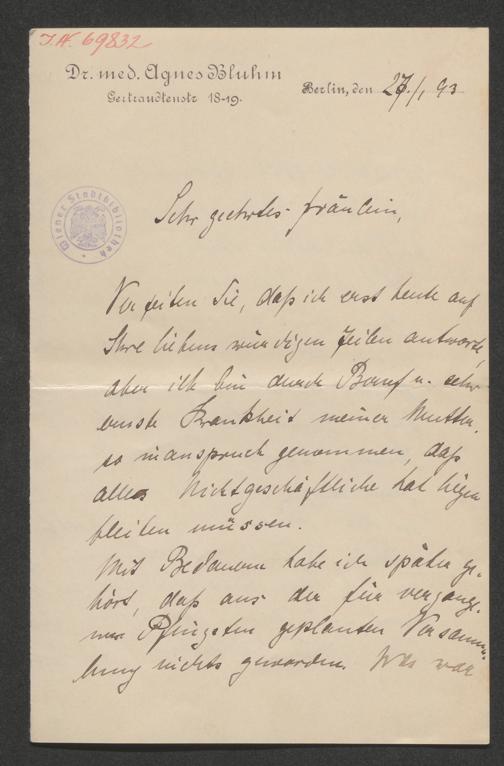 J.N. 69832
Dr. med. Agnes Bluhm
Gertraudtenstr 18-19.
Berlin, den 27./1. 93
Wiener Stadtbibliothek
Sehr geehrtes Fräulein,
Verzeihen Sie, daß ich erst heute auf
Ihre liebenswürdigen Zeilen antworte,
aber ich bin durch Beruf u. sehr
ernste Krankheit meiner Mutter
so inanspruch genommen, daß
alles Nichtgeschäftliche hat liegen
bleiben müssen.
Mit Bedauern habe ich später ge-
hört, daß aus der für vergange-
nen Pfingsten geplanten Versamm-
lung nichts geworden. Was war